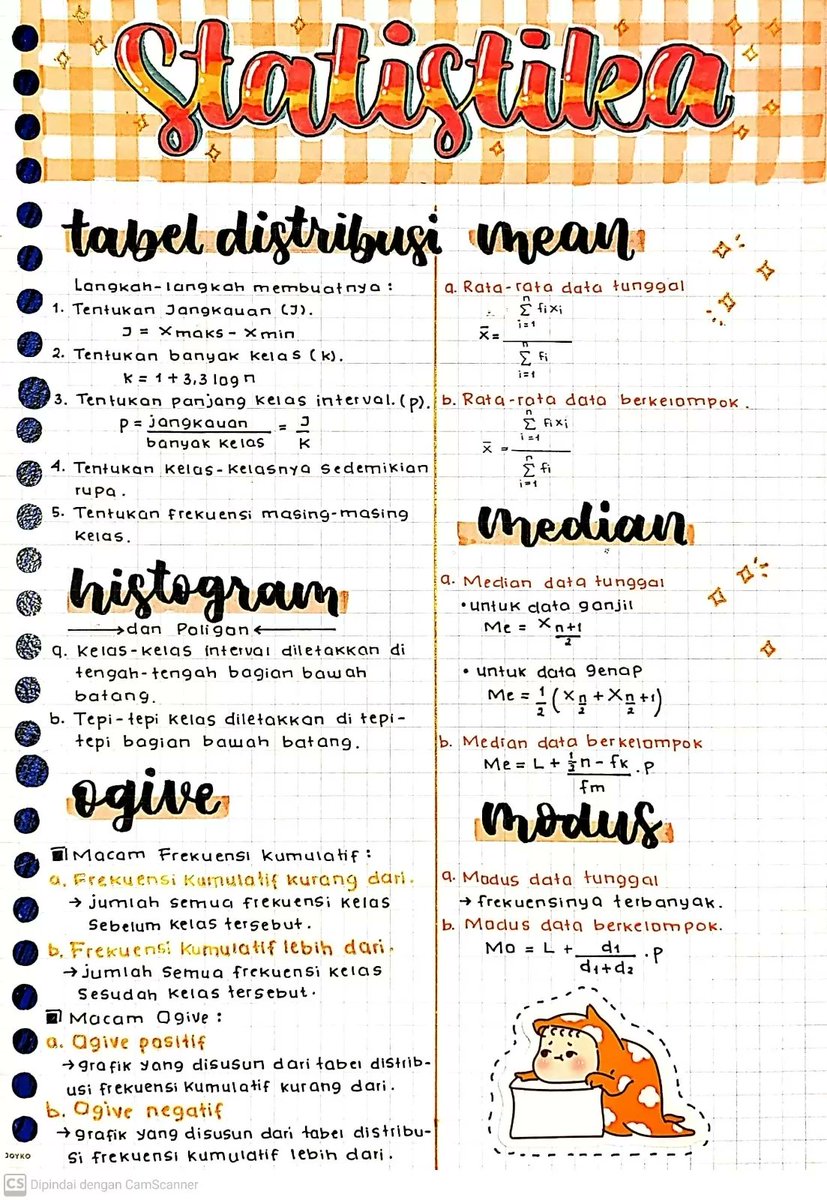 Statistika
tabel distribusi
Langkah-langkah membuatnya :
1. Tentukan Jangkauan (J).
J = Xmaks - Xmin
2. Tentukan banyak kelas (k).
k = 1 + 3,3 log n
3. Tentukan panjang kelas interval. (p).
p = jangkauan / banyak kelas = J / k
4. Tentukan kelas-kelasnya sedemikian
rupa.
5. Tentukan frekuensi masing-masing
kelas.
histogram
dan Poligan
a. Kelas-kelas interval diletakkan di
tengah-tengah bagian bawah
batang.
b. Tepi-tepi kelas diletakkan di tepi-
tepi bagian bawah batang.
ogive
Macam Frekuensi Kumulatif :
a. Frekuensi Kumulatif kurang dari.
→ jumlah semua frekuensi kelas
Sebelum kelas tersebut.
b. Frekuensi Kumulatif lebih dari.
→ jumlah semua frekuensi kelas
Sesudah kelas tersebut.
Macam Ogive :
a. Ogive positif
→ grafik yang disusun dari tabel distrib-
usi frekuensi kumulatif kurang dari.
b. Ogive negatif
→ grafik yang disusun dari tabel distribu-
si frekuensi kumulatif lebih dari.
mean
a. Rata-rata data tunggal
x̄ = n Σ i=1 fixi / n Σ i=1 fi
b. Rata-rata data berkelompok.
x̄ = n Σ i=1 fixi / n Σ i=1 fi
median
a. Median data tunggal
• untuk data ganjil
Me = X n+1/2
• untuk data genap
Me = 1/2 (X n/2 + X n/2 + 1)
b. Median data berkelompok
Me = L + 1/3 n - fk / fm . p
modus
a. Modus data tunggal
→ frekuensinya terbanyak.
b. Modus data berkelompok.
Mo = L + d1 / d1+d2 . p
JOYKO
CS Dipindai dengan CamScanner